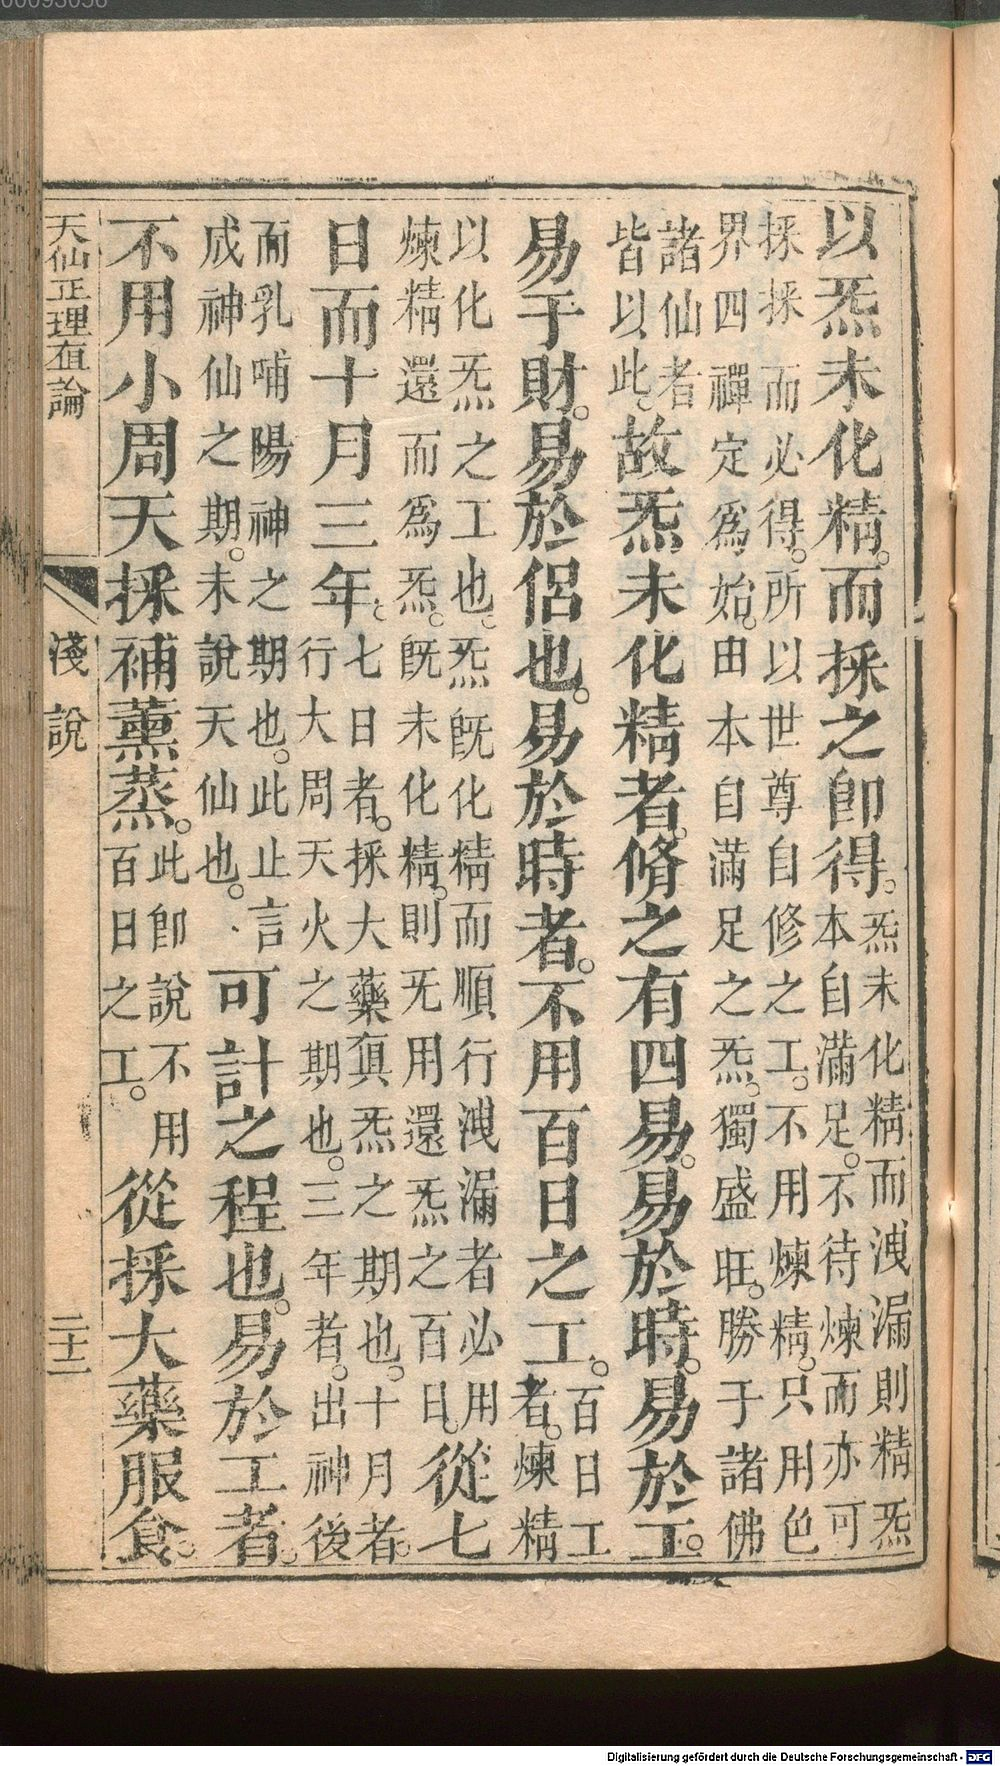 以炁未化精。而採之卽得。
炁未化精而洩漏則精炁
本自滿足。不待煉而亦可
採採而必得。所以世尊自修之工。不用煉精。只用色
界四禪定爲始。由本自滿足之炁。獨盛旺。勝于諸佛
諸仙者
皆以此。
故炁未化精者。脩之有四易。易於時。易於工。
易于財。易於侶也。易於時者。不用百日之工。
百日工
者。煉精
以化炁之工也。炁旣化精而順行洩漏者必用
煉精還而爲炁。旣未化精。則旡用還炁之百日。
從七
日而十月三年。
七日者。採大藥眞炁之期也。十月者。
行大周天火之期也。三年者。出神後
而乳哺陽神之期也。此止言
成神仙之期。未說天仙也。
可計之程也。易於工者。
不用小周天採補薰蒸。
此卽說不用
百日之工。
從採大藥服食。
天仙正理直論
淺說
二十二
Digitalisierung gefördert durch die Deutsche Forschungsgemeinschaft - DFG